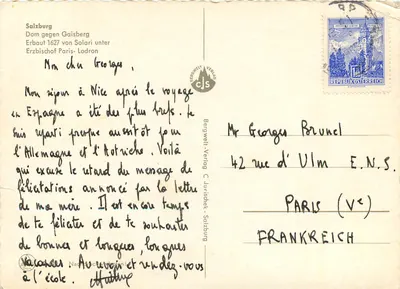 Salzburg
Dom gegen Gaisberg
Erbaut 1627 von Solari unter
Erzbischof Paris-Lodron
Mon cher Georges,
Mon séjour à Nice après le voyage
en Espagne a été des plus brefs. Je
suis reparti presque aussitôt pour
l'Allemagne et l'Autriche. Voilà
qui excuse le retard du message de
félicitations annoncé par la lettre
de ma mère. Il est encore temps
de te féliciter et de te souhaiter
de bonnes et longues, longues
vacances. Au revoir et rendez-vous
à l'école.
CJS
Bergwelt-Verlag C. Jurischek - Salzburg
REPUBLIK ÖSTERREICH
Mr Georges Brunel
42 rue d'Ulm E.N.S.
PARIS (Ve)
FRANKREICH